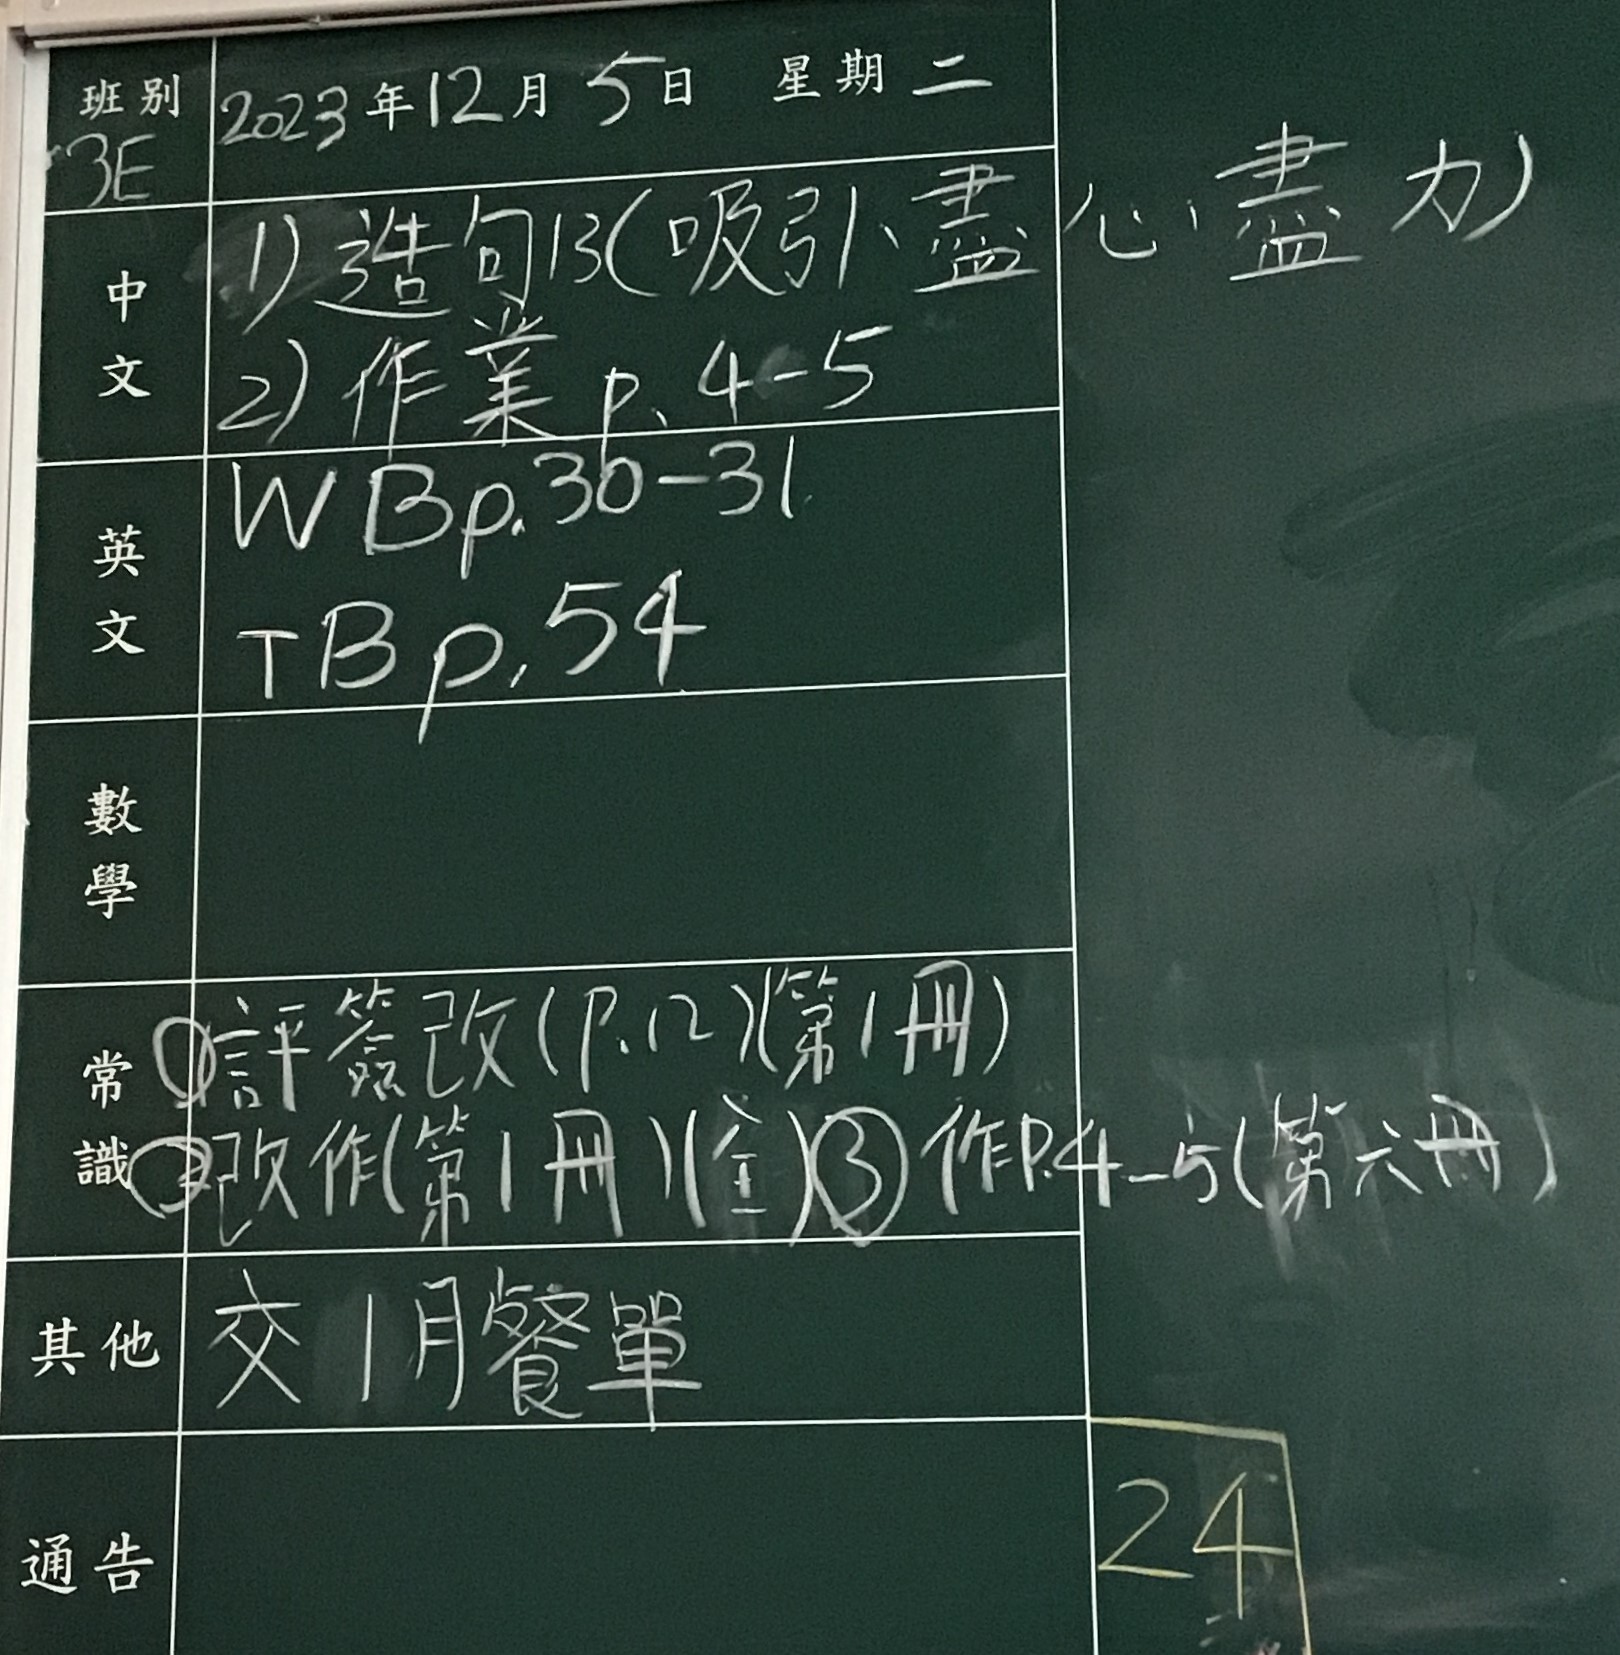 班別 2023年12月5日 星期二
3E
中文 1) 造句13(吸引、盡心盡力)
2) 作業 p. 4-5
英文 WB p.30-31
TB p.54
數學
常識 ①評簽改(P.12)(第1冊)
②改作(第1冊)(全)③作P.4-5(第六冊)
其他 交1月餐單
通告
24